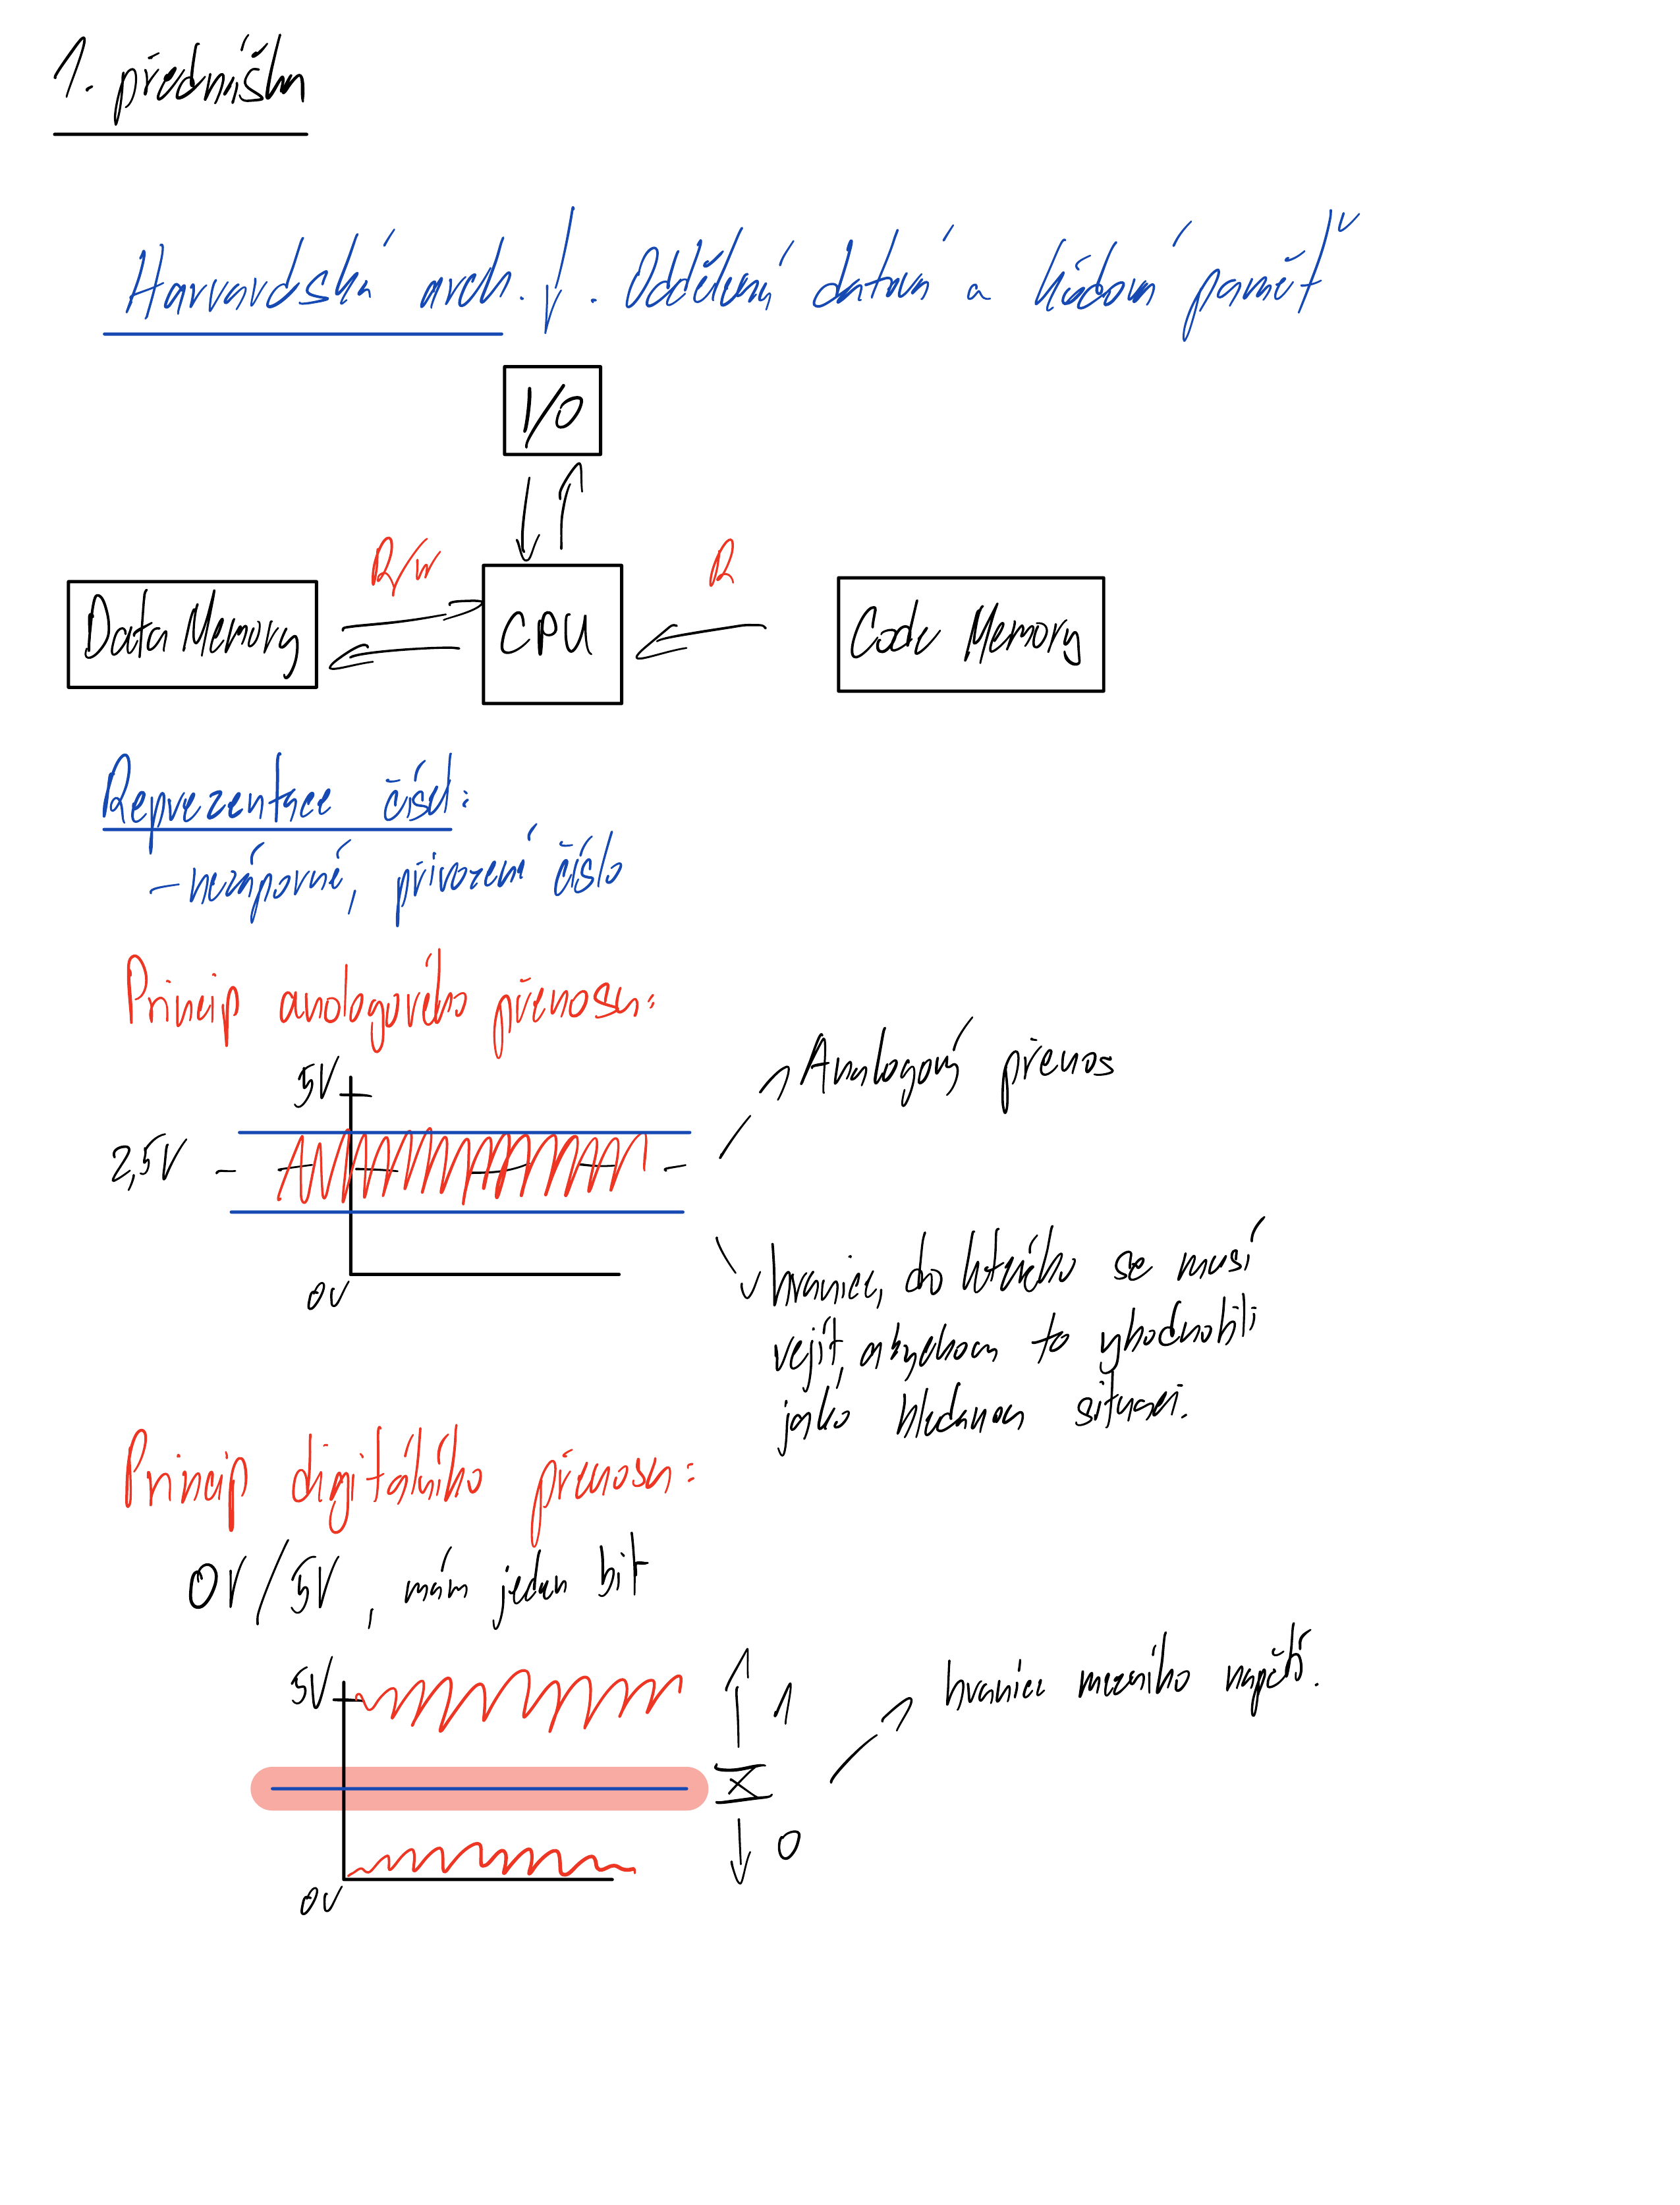 1. přednáška
Harvardská arch. : Oddělená datová a kódová paměť
I/O
R/W
R
Data Memory
CPU
Code Memory
Reprezentace čísel:
- nezáporné, přirozené číslo
Princip analogového přenosu:
5V
Analogový přenos
2,5V
0V
hranice, do kterého se musí
vejít, abychom to vyhodnotili
jako hledanou situaci.
Princip digitálního přenosu:
0V/5V, mám jeden bit
5V
1
hranice mezního napětí.
X
0
0V